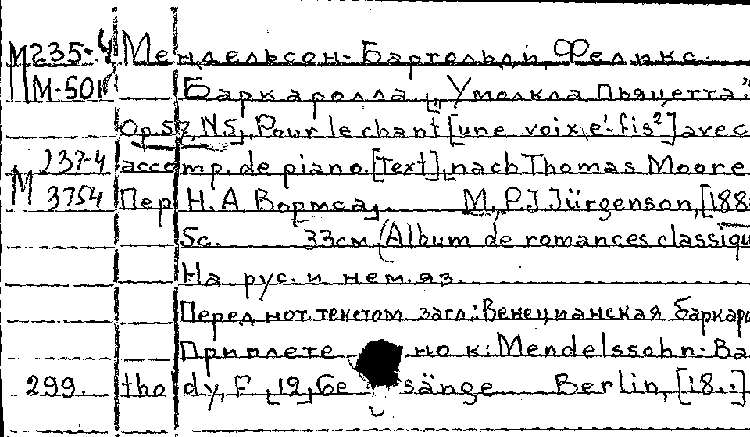 М235-4 Мендельсон-Бартольди, Феликс.
М-501 Баркаролла "Умолкла Пьяцетта"
Op.57, N5, Pour le chant [une voix e¹-fis²] avec
М 237-4 accomp. de piano. [Text] nach Thomas Moore
3754 Пер. Н.А. Вормса. М., P.J. Jürgenson, [188
5с. 33см (Album de romances classiqu
На рус. и нем. яз.
Перед нот. текстом загл.: Венецианская баркаро
Приплетено к: Mendelssohn-Ba
299. tholdy, F. 12, Gesänge Berlin, [18..]